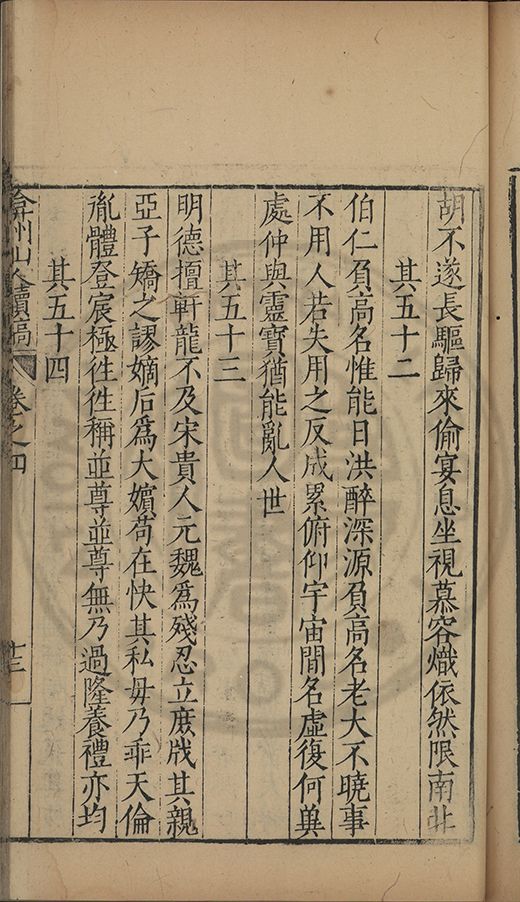 胡不遂長驅歸來偷宴息坐視慕容熾依然限南北
其五十二
伯仁負高名惟能日洪醉深源負高名老大不曉事
不用人若失用之反成累俯仰宇宙間名虛復何冀
處仲與靈寶猶能亂人世
其五十三
明德擅軒龍不及宋貴人元魏為殘忍立庶戕其親
亞子矯之謬嫡后為大嬪苟在快其私毋乃乖天倫
胤體登宸極徃徃稱並尊並尊無乃過隆養禮亦均
其五十四
弇州山人續稿 卷之四 十三